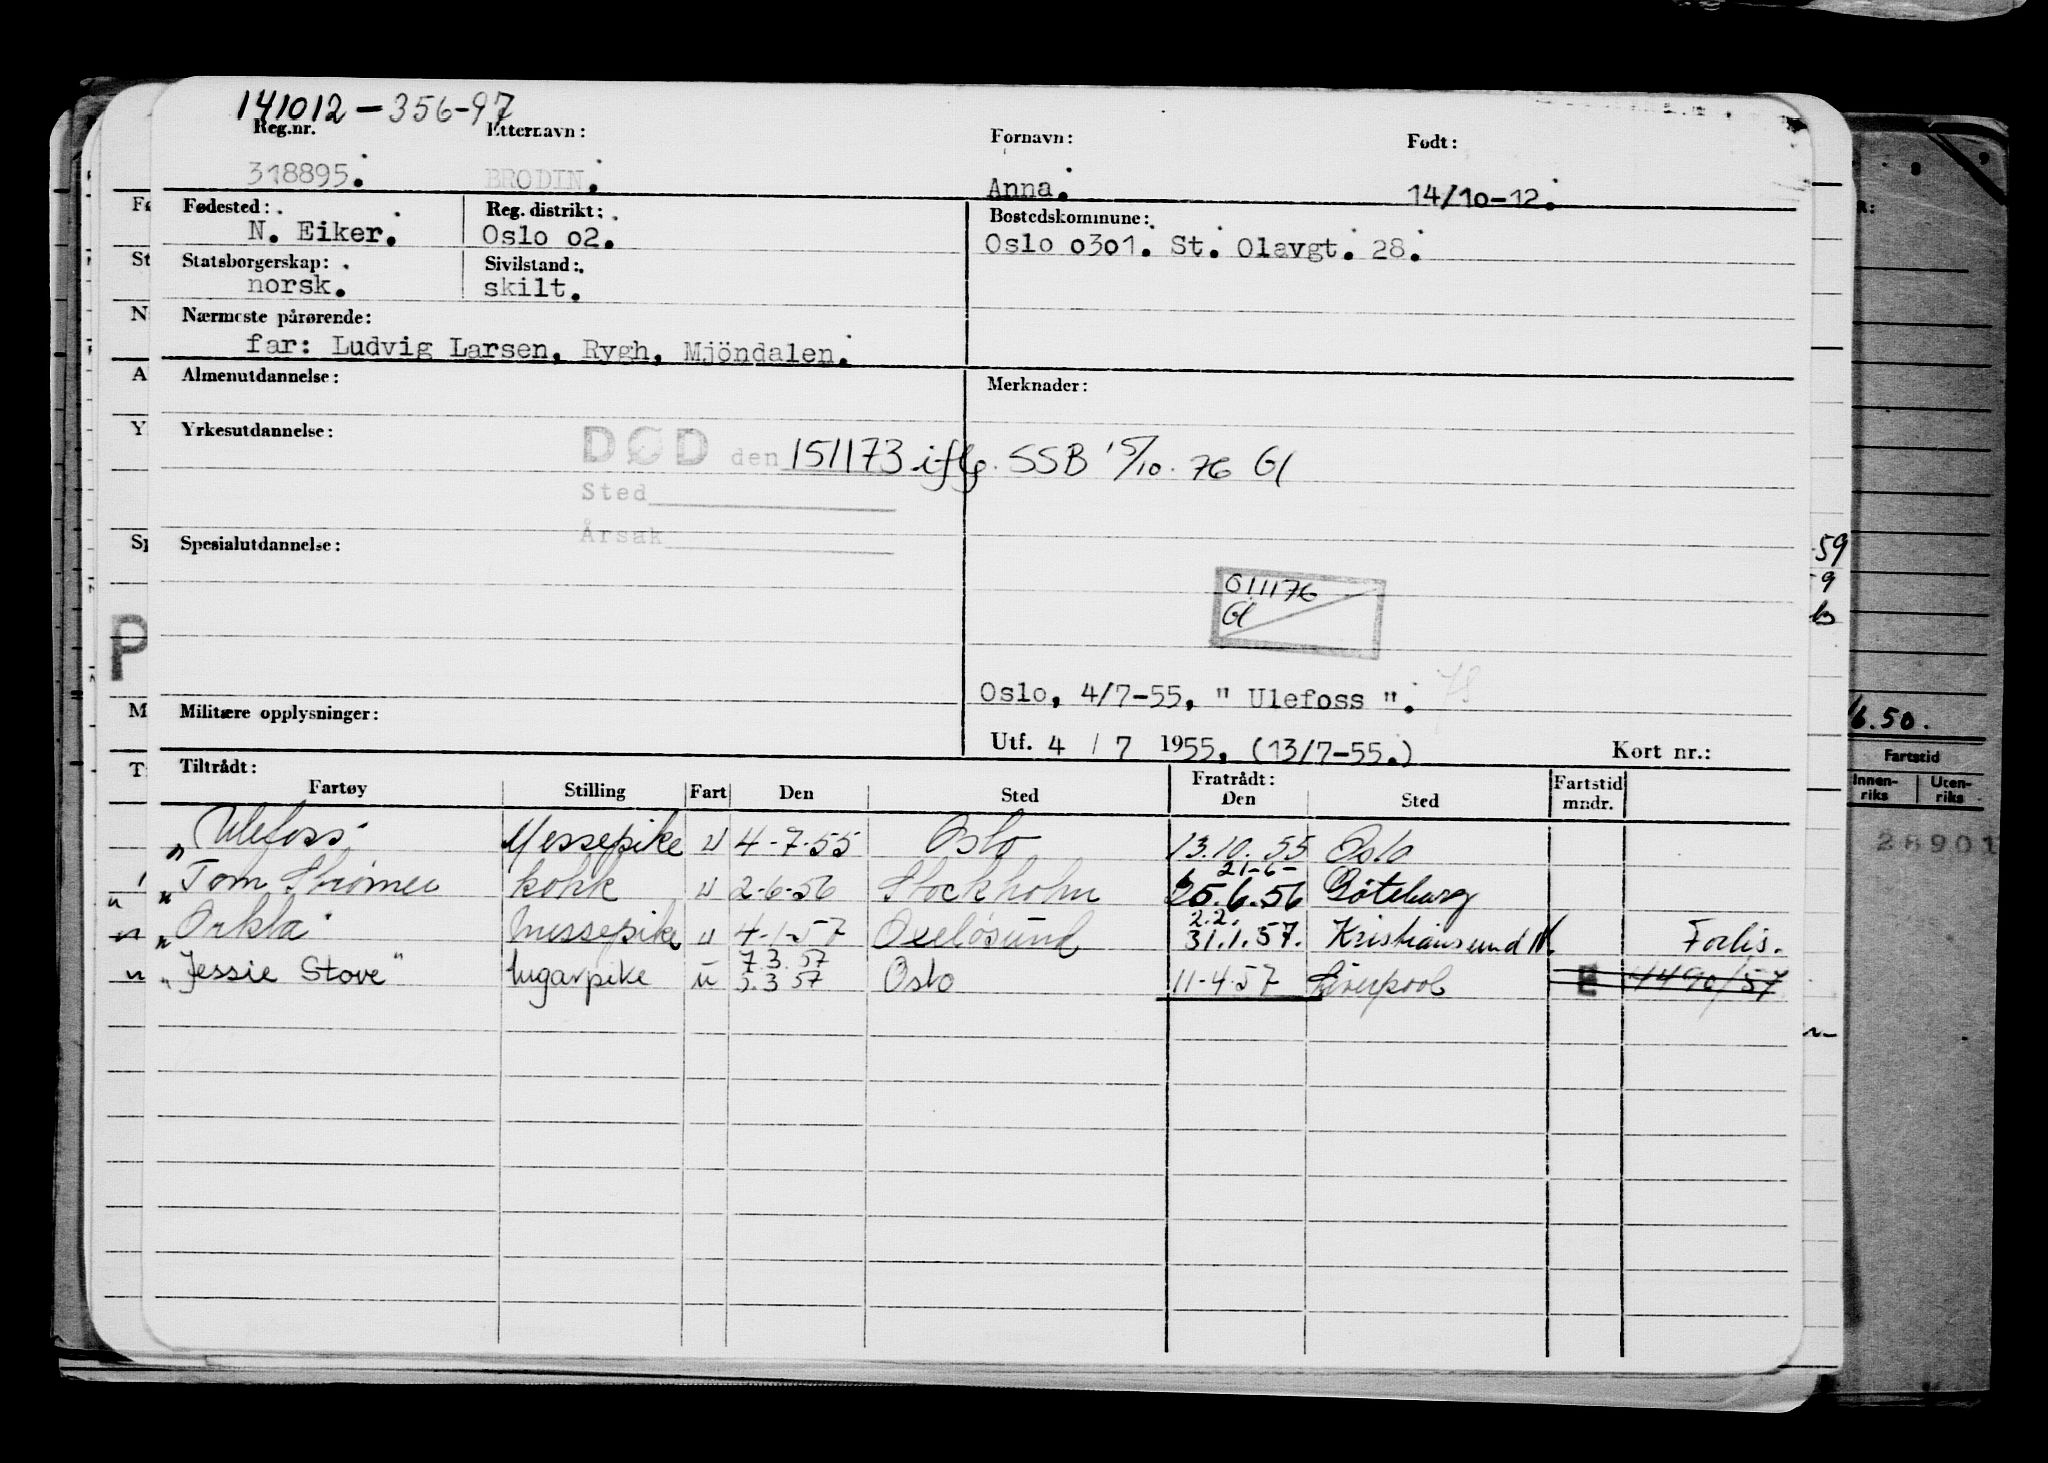 141012-356-97
Reg.nr. Etternavn: Fornavn: Født:
318895. BRODIN. Anna. 14/10-12.
Fødested: Reg. distrikt: Bostedskommune:
N. Eiker. Oslo 02. Oslo 0301. St. Olavgt. 28.
Statsborgerskap: Sivilstand:
norsk. skilt.
Nærmeste pårørende:
far: Ludvig Larsen, Rygh, Mjöndalen.
Almenutdannelse: Merknader:
Yrkesutdannelse:
DØD den 151173 iflg. SSB 15/10-76 Gl
Sted
Årsak
Spesialutdannelse:
011176
Gl
Oslo, 4/7-55, " Ulefoss ".
Militære opplysninger:
Utf. 4 / 7 1955. (13/7-55.) Kort nr.:
Tiltrådt: Fratrådt: Fartstid
Fartøy Stilling Fart Den Sted Den Sted mndr.
"Ulefoss" Messepike u 4-7-55 Oslo 13.10.55 Oslo
21-6-
"Tom Strømer kokk u 2-6-56 Stockholm 25.6.56 Göteborg
2.2.
"Orkla" messepike u 4-1-57 Oxelösund 31.1.57. Kristiansund N. Forlis.
7.3.57
"Jessie Stove" lugarpike u 5.3 57 Oslo 11-4-57 Liverpool E 4490/57
59
9
6.50.
Fartstid
Innen-riks Uten-riks
28901